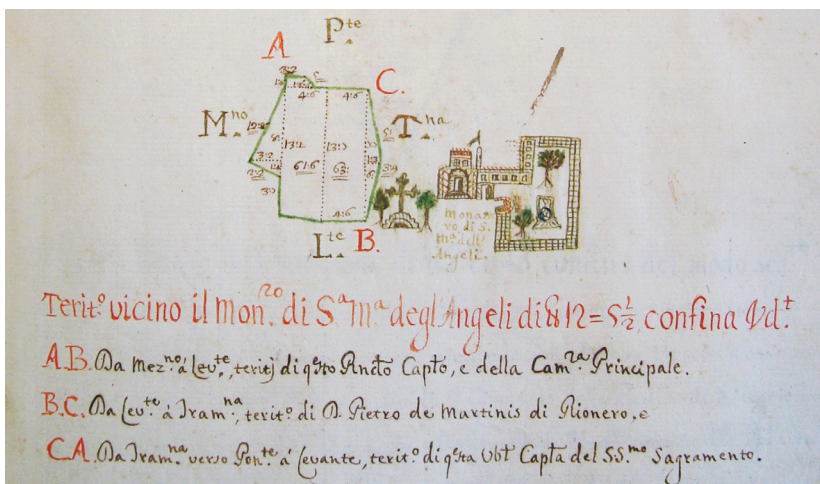 Pte
A
C.
Mno
Tna
4:6
4:6
13:2
13:
61:6
63:
3:3
4:6
Ite
B.
monas
ro di S.
Ma dell'
Angeli.
Terito vicino il Monro di Sa Ma degl'Angeli di 12=5½, confina
A.B. Da Mezno á Levte, teritj di qsto Capto, e della Camra Principale.
B.C. Da Levte á Tramna, terito di D. Pietro de Martinis di Rionero, e
C.A. Da Tramna verso Ponte á Levante, terito di qsta Capta del SS.mo Sagramento.